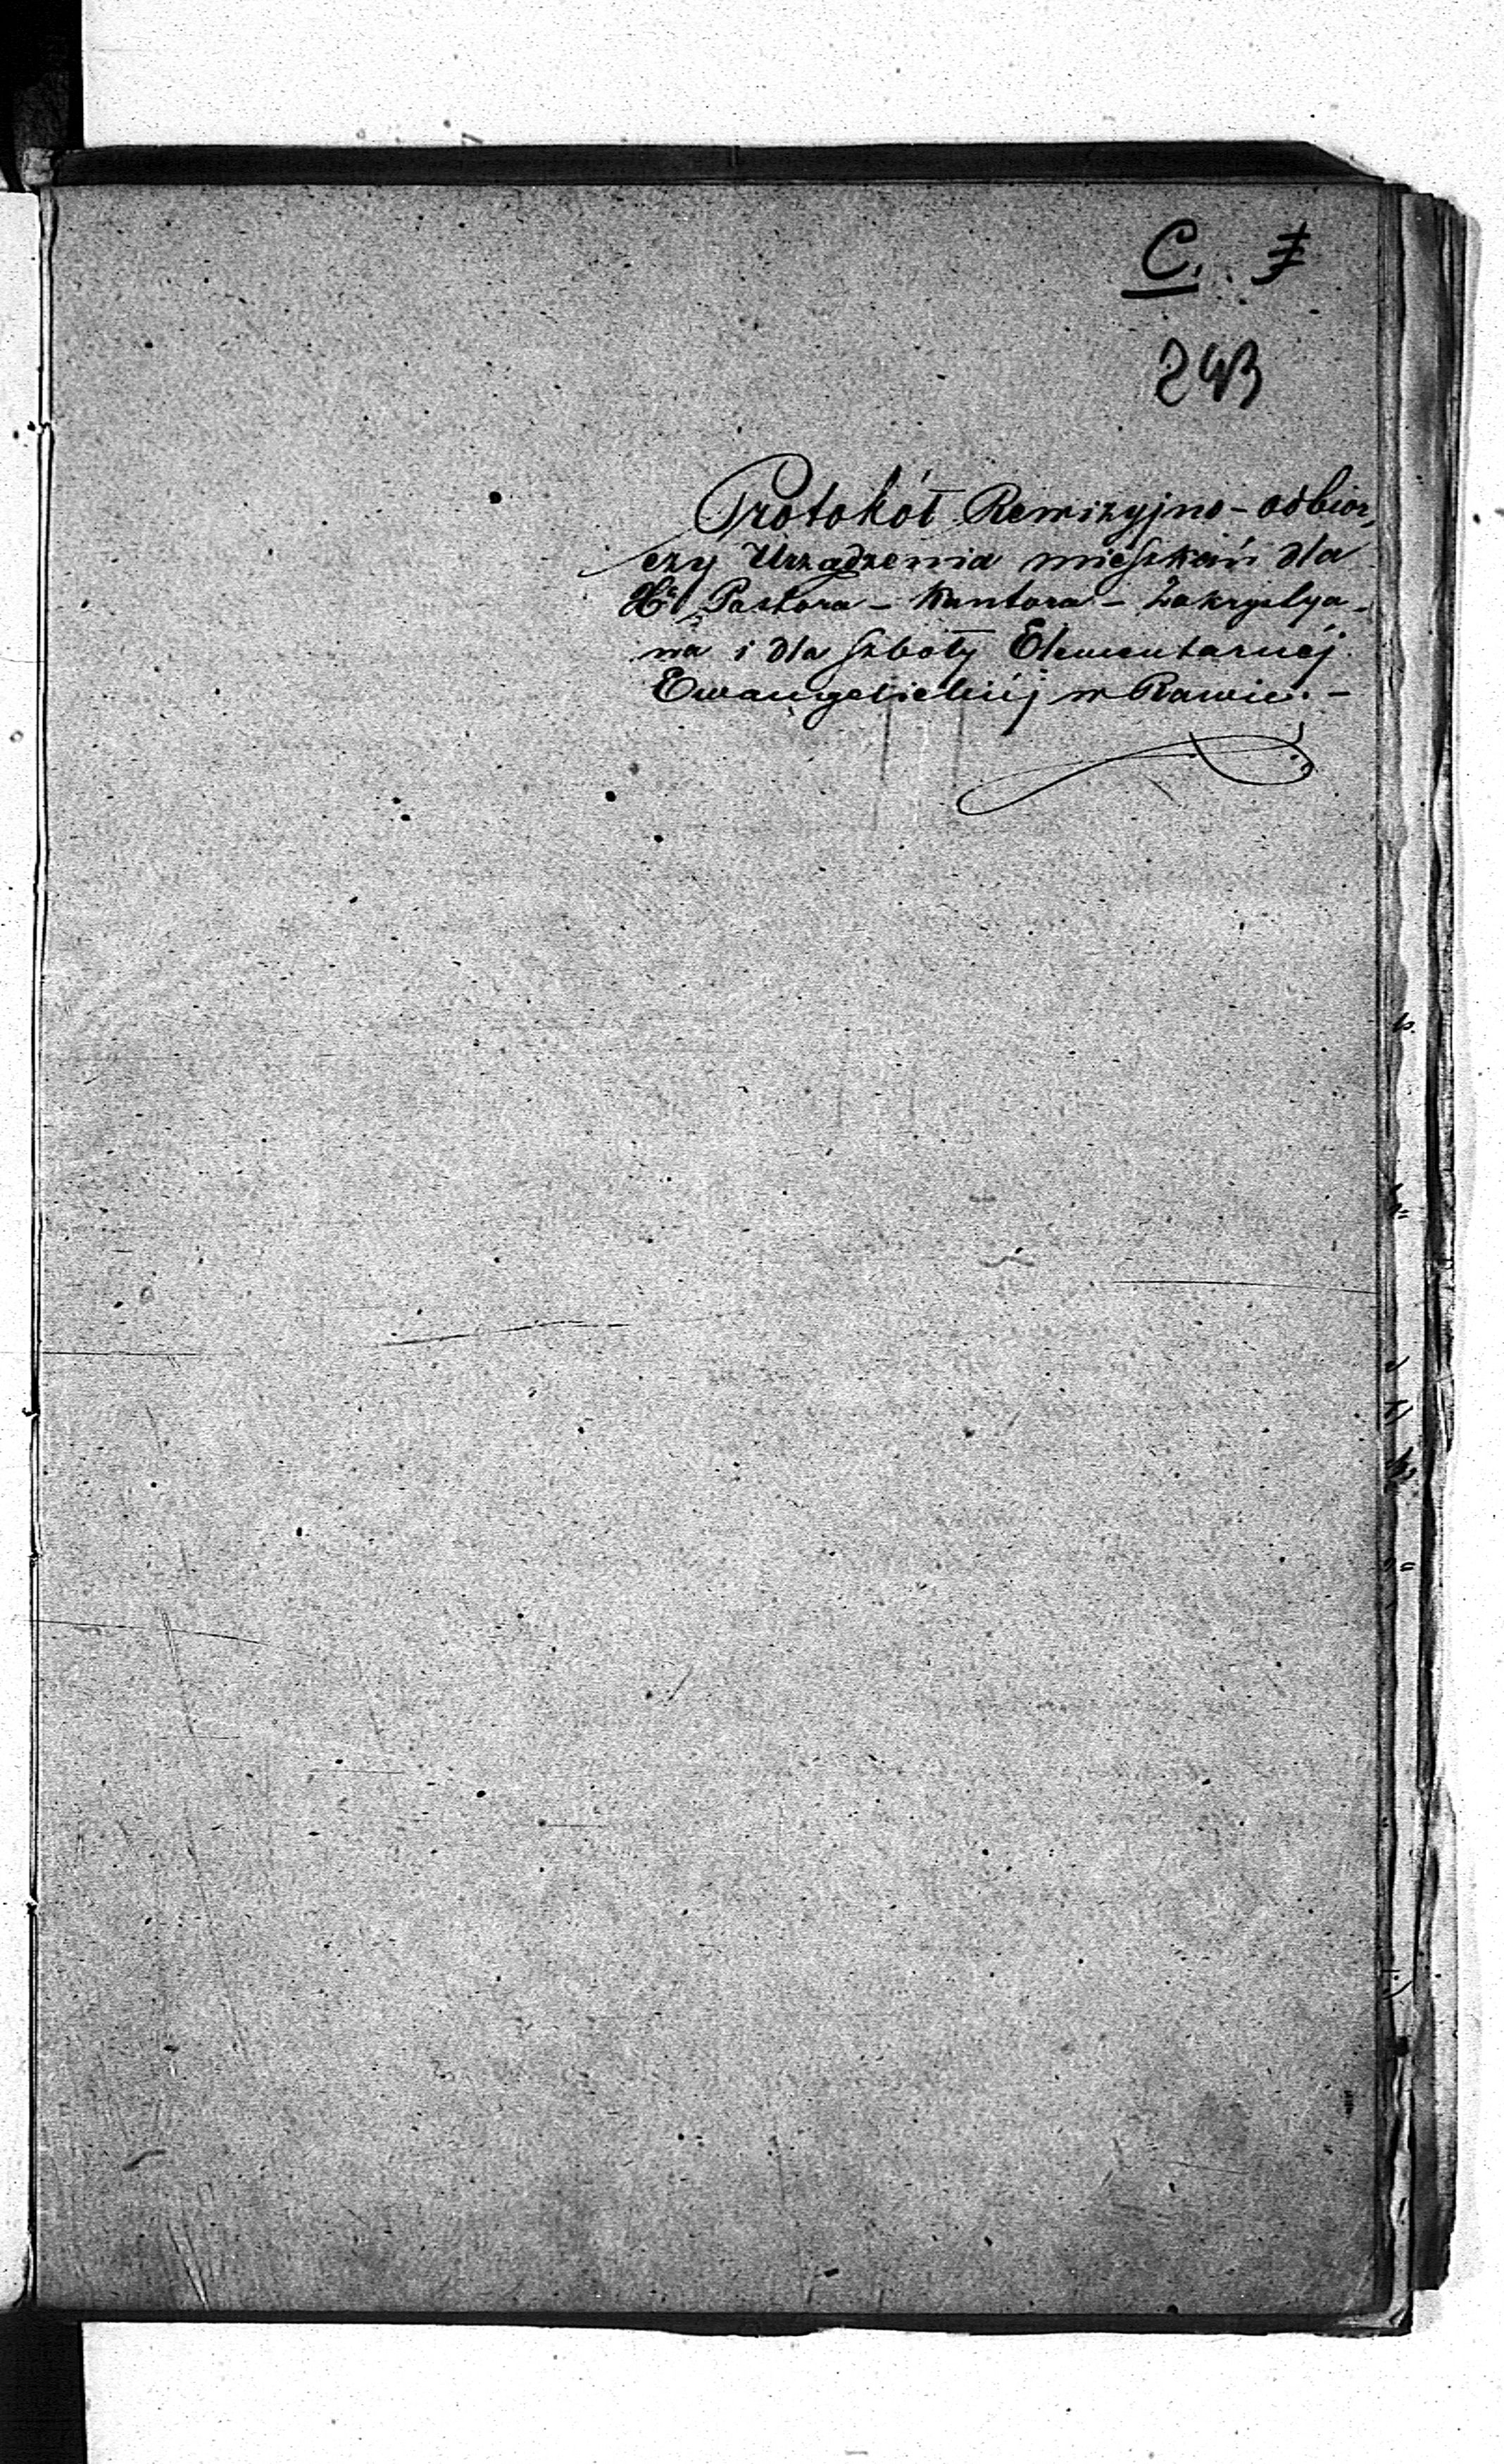 C.
243
Protokół Rewizyjno - odbior,
czy Urządzenia mieszkań dla
Pastora - Kantora - Zakrystya-
na i dla szkoły Elementarnéj
Ewangelickiéj w Rawie. -